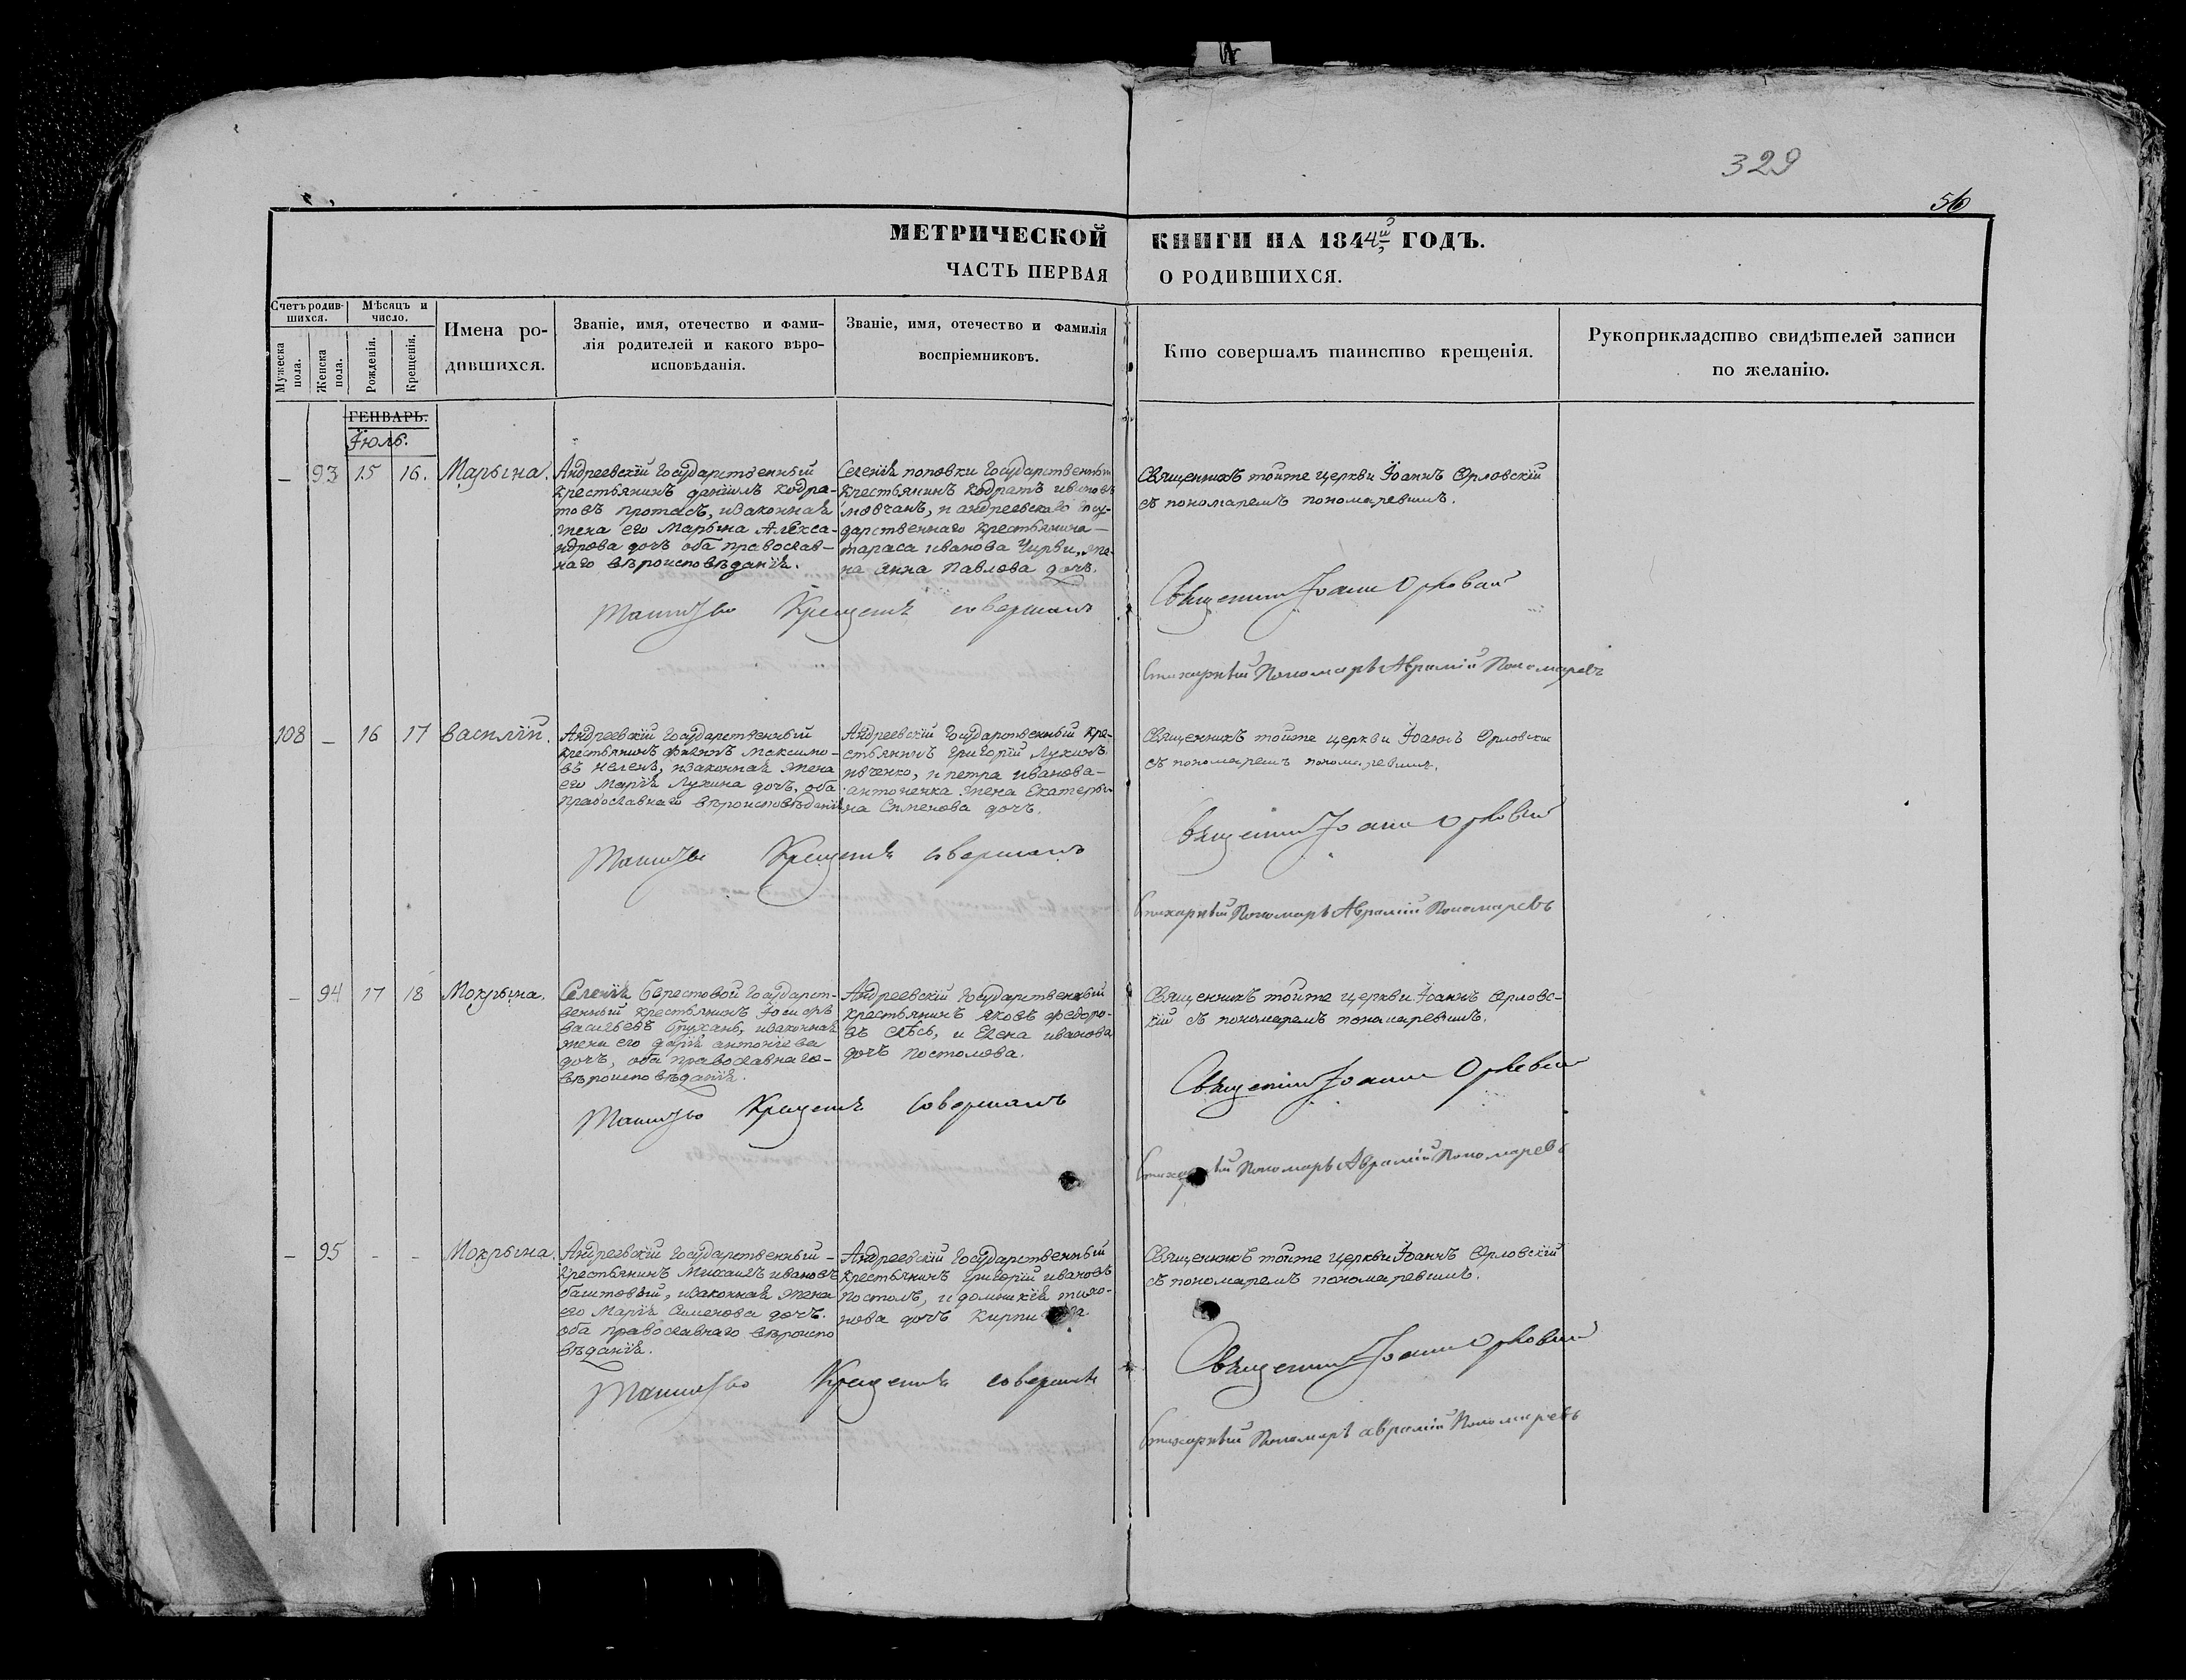 329
56
МЕТРИЧЕСКОЙ КНИГИ НА 1844й ГОДЪ.
ЧАСТЬ ПЕРВАЯ О РОДИВШИХСЯ.
Счетъ родив-
шихся.
Мѣсяцъ и
число.
Мужеска
пола.
Женска
пола.
Рожденія.
Крещенія.
Имена ро-
дившихся.
Званіе, имя, отечество и фами-
лія родителей и какого вѣро-
исповѣданія.
Званіе, имя, отечество и фамилія
воспріемниковъ.
Кто совершалъ таинство крещенія.
Рукоприкладство свидѣтелей записи
по желанію.
ГЕНВАРЬ.
Іюль.
— 93 15 16. Марына.
Андреевскій Государственный
крестьянинъ Даніилъ Кодра-
товъ Протасъ, изаконная
жена его Марына Алекса-
ндрова дочь оба православ-
наго вѣроисповѣданія.
Селенія поповки Государственный
крестьянинъ Кодратъ Ивановъ
Мовчанъ, и андреевскаго Госу-
дарственнаго крестьянина
тараса иванова Чирви, же-
на Анна Павлова дочь.
Священникъ тойже церкви Іоаннъ Орловскій
съ пономаремъ пономаревымъ.
Таинство Крещенія совершалъ
Священникъ Іоаннъ Орловскій
Стихарный Пономарь Аврамій Пономаревъ
108 — 16 17 Василій.
Андреевскій Государственный
крестьянинъ Максимо-
въ, изаконная жена
его Марія Лукина дочь, оба
Православнаго вѣроисповѣданія
Андреевскій Государственный кре-
стьянинъ Григорій Лукинъ
ивченко, и петра иванова
антоненка жена Екатеры-
на Сѵменова дочь.
Священникъ тойже церкви Іоаннъ Орловскій
съ пономаремъ пономаревымъ.
Таинство Крещенія совершалъ
Священникъ Іоаннъ Орловскій
Стихарный Пономарь Аврамій Пономаревъ
— 94 17 18 Мокрына.
Селенія Берестовой Государст-
венный крестьянинъ Іосифъ
Васильевъ, изаконная
жена его Дарія антоніева
дочь, оба православнаго
вѣроисповѣданія.
Андреевскій Государственный
крестьянинъ Яковъ Федоро-
въ, и Елена иванова
дочь Постолова.
Священникъ тойже церкви Іоаннъ Орловс-
кій съ пономаремъ пономаревымъ.
Таинство Крещенія совершалъ
Священникъ Іоаннъ Орловскій
Стихарный Пономарь Аврамій Пономаревъ
— 95 - - Мокрына.
Андреевскій Государственный
крестьянинъ Михаилъ ивановъ
баштовый, изаконная жена
его Марія Семенова дочь.
оба православнаго вѣроиспо
вѣданія.
Андреевскій Государственный
крестьянинъ Григорій ивановъ
Постолъ, и домникія тимо-
нова дочь
Священникъ тойже церкви Іоаннъ Орловскій
съ пономаремъ пономаревымъ.
Таинство Крещенія совершалъ
Священникъ Іоаннъ Орловскій
Стихарный Пономарь аврамій Пономаревъ